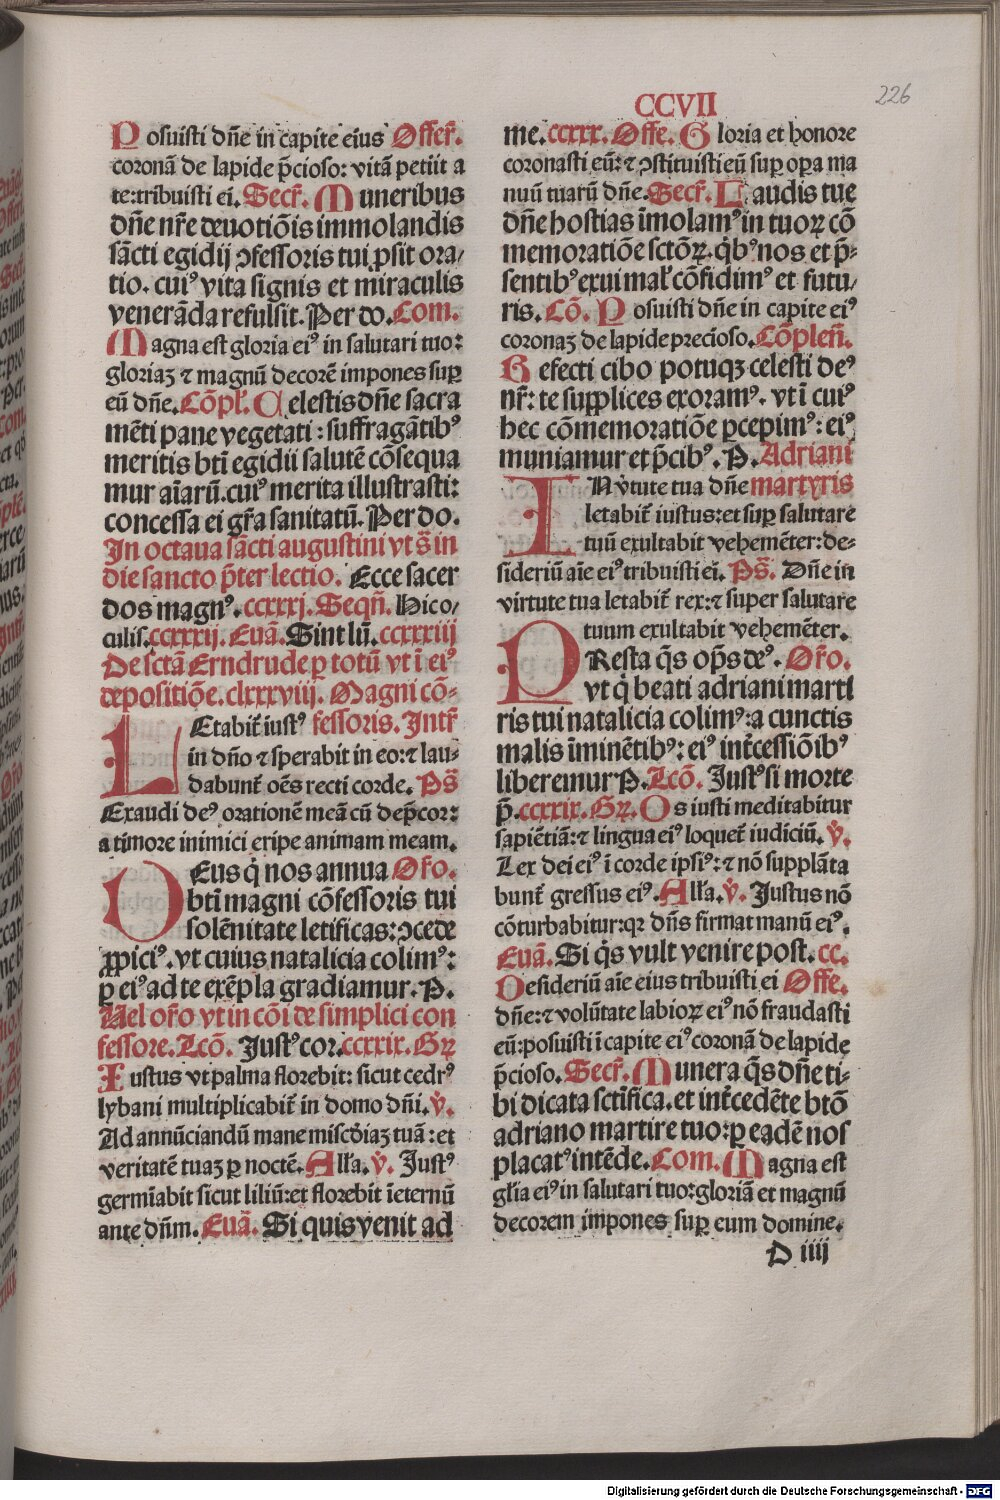 226
CCVII
Posuisti dn̄e in capite eius Offer̄.
coronā de lapide p̄cioso: vitā petiit a
te: tribuisti ei. Secr̄. Muneribus
dn̄e nr̄e deuotiōis immolandis
sācti egidij ꝯfessoris tui ꝓsit ora/
tio. cuiꝰ vita signis et miraculis
venerāda refulsit. Per do. Com.
Magna est gloria eiꝰ in salutari tuo:
gloriaꝫ ⁊ magnū decorē impones suꝑ
eū dn̄e. Cōpl̄. Celestis dn̄e sacra
mēti pane vegetati: suffragātibꝰ
meritis bt̄i egidii salutē cōsequa
mur aīarū. cuiꝰ merita illustrasti:
concessa ei gr̄a sanitatū. Per do.
In octaua sācti augustini vt s̄ in
die sancto p̄ter lectio. Ecce sacer
dos magnꝰ. ccxxxj. Seqn̄. Hic o/
culis. ccxxxij. Euā. Sint lū. ccxxxiij
De sctā Erndrude ꝑ totū vt ī eiꝰ
depositiōe. clxxxviij. Magni cō-
Letabit̄ iustꝰ fessoris. Intr̄
in dn̄o ⁊ sperabit in eo: ⁊ lau-
dabunt̄ oēs recti corde. Ps̄
Exaudi deꝰ orationē meā cū dep̄cor:
a timore inimici eripe animam meam.
DEus q̇ nos annua Oro.
bt̄i magni cōfessoris tui
solēnitate letificas: ꝯcede
ꝓpiciꝰ. vt cuius natalicia colimꝰ:
ꝑ eiꝰ ad te exēpla gradiamur. P.
Vel or̄o vt in cōi de simplici con
fessore. Lcō. Justꝰ cor. ccxxix. Gꝝ
Iustus vt palma florebit: sicut cedrꝰ
lybani multiplicabit̄ in domo dn̄i. v̇.
Ad annūciandū mane miscd̄iaꝫ tuā: et
veritatē tuaꝫ ꝑ noctē. All̄a. v̇. Justꝰ
germīabit sicut liliū: et florebit ī eternū
ante dn̄m. Euā. Si quis venit ad
me. ccxxx. Offe. Gloria et honore
coronasti eū: ⁊ ꝯstituisti eū suꝑ oꝑa ma
nuū tuarū dn̄e. Secr̄. Laudis tue
dn̄e hostias īmolamꝰ in tuoꝝ cō
memoratiōe sctōꝝ. q̇bꝰ nos et p̄-
sentibꝰ exui mal̄ cōfidimꝰ et futu/
ris. Cō. Posuisti dn̄e in capite eiꝰ
coronaꝫ de lapide precioso. Cōplen̄.
Refecti cibo potuqꝫ celesti deꝰ
nr̄: te supplices exoramꝰ. vt ī cuiꝰ
hec cōmemoratiōe ꝑcepimꝰ: eiꝰ
muniamur et p̄cibꝰ. P. Adriani
IN v̇tute tua dn̄e martyris
letabit̄ iustus: et suꝑ salutare
tuū exultabit vehemēter: de-
sideriū aīe eiꝰ tribuisti ei. Ps̄. Dn̄e in
virtute tua letabit̄ rex: ⁊ super salutare
tuum exultabit vehemēter.
PResta q̄s op̄s deꝰ. Or̄o.
vt q̇ beati adriani marti
ris tui natalicia colimꝰ: a cunctis
malis īminētibꝰ: eiꝰ int̄cessiōibꝰ
liberemur P. Lcō. Justꝰ si morte
p̄. ccxxix. Gꝝ. Os iusti meditabitur
sapiētiā: ⁊ lingua eiꝰ loquet̄ iudiciū. v̇.
Lex dei eiꝰ ī corde ipsiꝰ: ⁊ nō supplāta
bunt̄ gressus eiꝰ. All̄a. v̇. Justus nō
cōturbabitur: qꝛ dn̄s firmat manū eiꝰ.
Euā. Si q̇s vult venire post. cc.
Desideriū aīe eius tribuisti ei Offe.
dn̄e: ⁊ volūtate labioꝝ eiꝰ nō fraudasti
eū: posuisti ī capite eiꝰ coronā de lapide
p̄cioso. Secr̄. Munera q̄s dn̄e ti-
bi dicata sctifica. et int̄cedēte btō
adriano martire tuo: ꝑ eadē nos
placatꝰ intēde. Com. Magna est
gl̄ia eiꝰ in salutari tuo: gloriā et magnū
decorem impones suꝑ eum domine.
D iiij
Digitalisierung gefördert durch die Deutsche Forschungsgemeinschaft - DFG